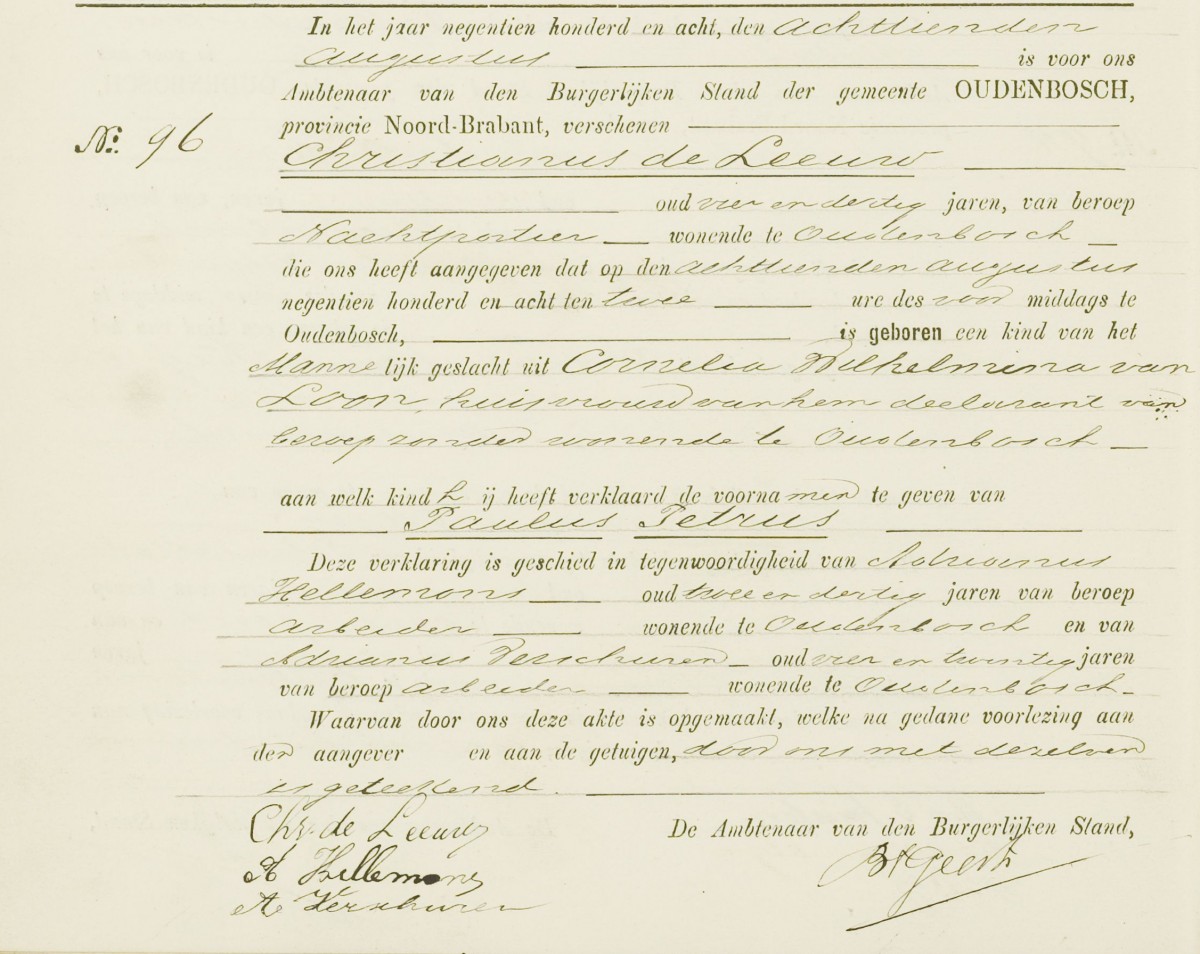 In het jaar negentien honderd en acht, den achttienden
augustus is voor ons
Ambtenaar van den Burgerlijken Stand der gemeente OUDENBOSCH,
provincie Noord-Brabant, verschenen
No. 96
Christianus de Leeuw
oud vier en dertig jaren, van beroep
Nachtportier wonende te Oudenbosch
die ons heeft aangegeven dat op den achttienden augustus
negentien honderd en acht ten twee ure des voor middags te
Oudenbosch, is geboren een kind van het
Manne lijk geslacht uit Cornelia Wilhelmina van
Loon, huisvrouw van hem declarant van
beroep zonder wonende te Oudenbosch
aan welk kind h ij heeft verklaard de voorna men te geven van
Paulus Petrus
Deze verklaring is geschied in tegenwoordigheid van Adrianus
Hellemons oud twee en dertig jaren van beroep
arbeider wonende te Oudenbosch en van
Adrianus Verschuren oud vier en twintig jaren
van beroep arbeider wonende te Oudenbosch
Waarvan door ons deze akte is opgemaakt, welke na gedane voorlezing aan
den aangever en aan de getuigen, door ons met dezelven
is geteekend.
Chr. de Leeuw De Ambtenaar van den Burgerlijken Stand,
A Hellemons
A Verschuren